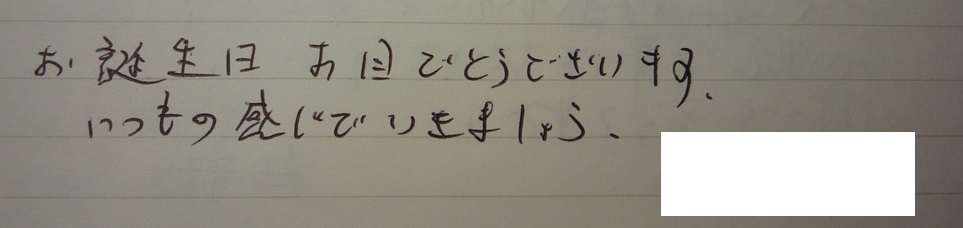 お誕生日お目でとうございます。
いつもの感じでいきましょう。